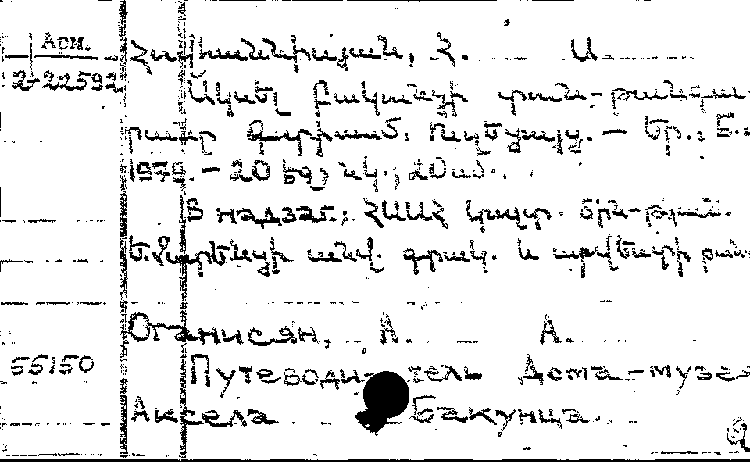 Арм.
Հովհաննիսյան, Հ. Ա.
2-22592
Ակսել Բակունցի տուն-թանգա-
րանը Գորիսում: Ուղեցույց. — Եր.:
1979. — 20 էջ, նկ.; 20 սմ.
В надзаг.: ՀՍՍՀ կուլտ. մին-թյան.
Ե. Չարենցի անվ. գրակ. և արվեստի թան
Оганисян, А. А.
55150
Путеводи-тель Дома-музея
Аксела Бакунца.